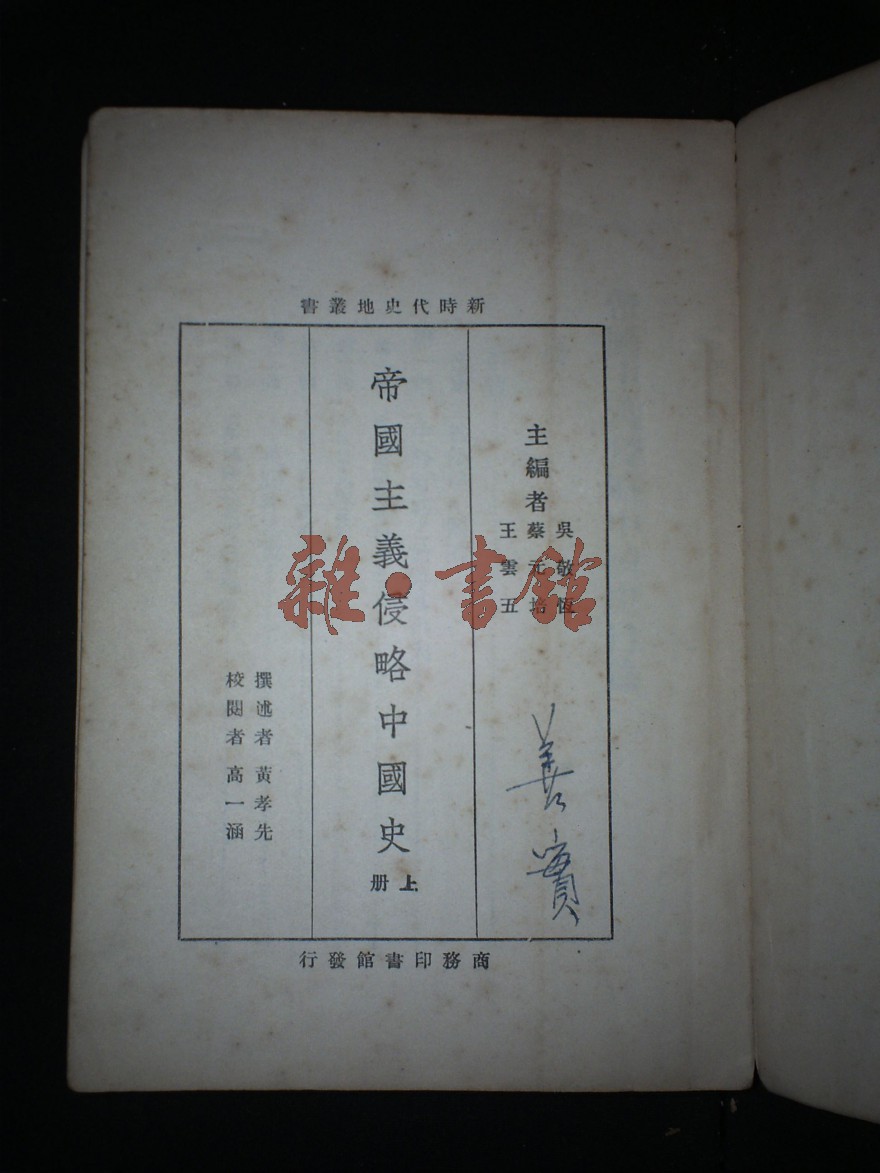 新時代史地叢書
主編者
吳敬恆
蔡元培
王雲五
帝國主義侵略中國史
上册
撰述者 黃孝先
校閱者 高一涵
商務印書館發行
善實
雜·書館